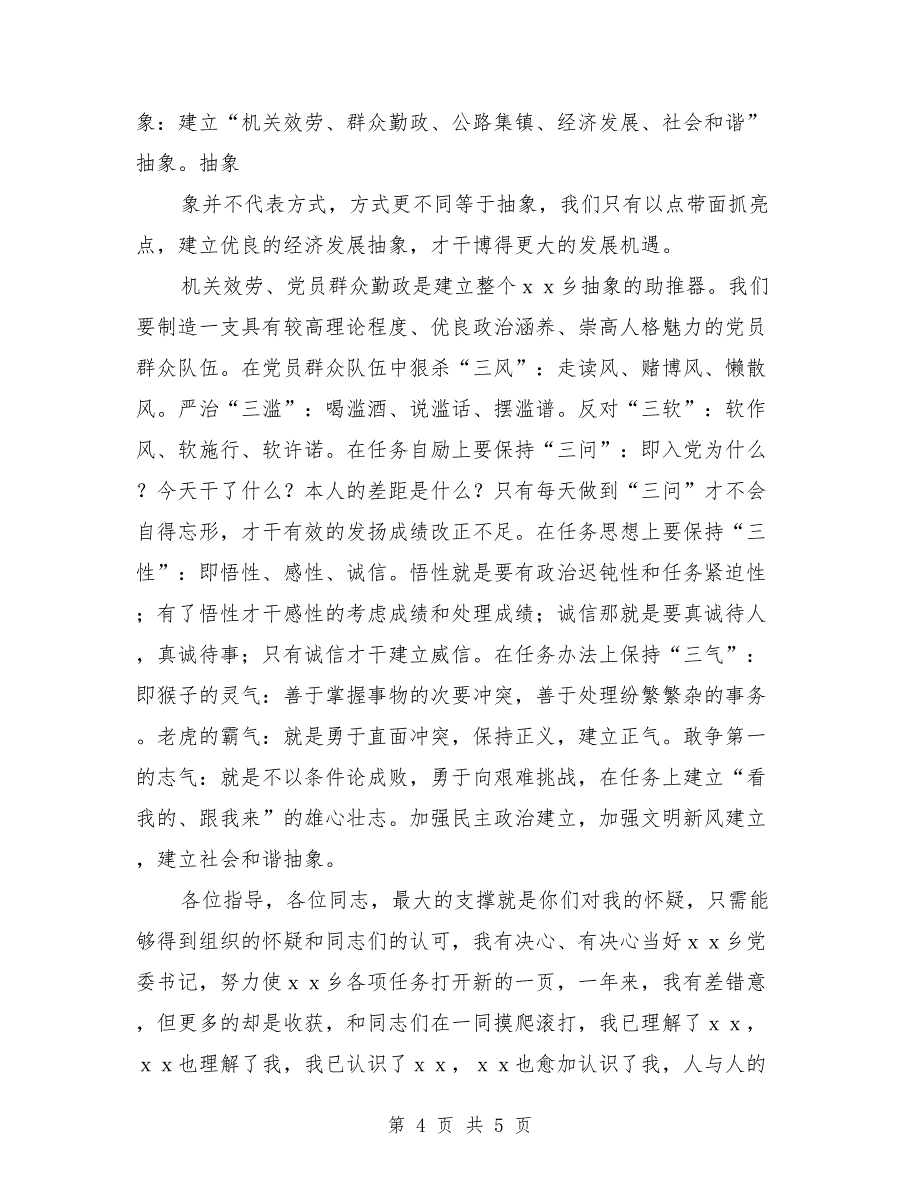 象：建立“机关效劳、群众勤政、公路集镇、经济发展、社会和谐”
抽象。抽象
象并不代表方式，方式更不同等于抽象，我们只有以点带面抓亮
点，建立优良的经济发展抽象，才干博得更大的发展机遇。
机关效劳、党员群众勤政是建立整个ｘｘ乡抽象的助推器。我们
要制造一支具有较高理论程度、优良政治涵养、崇高人格魅力的党员
群众队伍。在党员群众队伍中狠杀“三风”：走读风、赌博风、懒散
风。严治“三滥”：喝滥酒、说滥话、摆滥谱。反对“三软”：软作
风、软施行、软许诺。在任务自励上要保持“三问”：即入党为什么
？今天干了什么？本人的差距是什么？只有每天做到“三问”才不会
自得忘形，才干有效的发扬成绩改正不足。在任务思想上要保持“三
性”：即悟性、感性、诚信。悟性就是要有政治迟钝性和任务紧迫性
；有了悟性才干感性的考虑成绩和处理成绩；诚信那就是要真诚待人
，真诚待事；只有诚信才干建立威信。在任务办法上保持“三气”：
即猴子的灵气：善于掌握事物的次要冲突，善于处理纷繁繁杂的事务
。老虎的霸气：就是勇于直面冲突，保持正义，建立正气。敢争第一
的志气：就是不以条件论成败，勇于向艰难挑战，在任务上建立“看
我的、跟我来”的雄心壮志。加强民主政治建立，加强文明新风建立
，建立社会和谐抽象。
各位指导，各位同志，最大的支撑就是你们对我的怀疑，只需能
够得到组织的怀疑和同志们的认可，我有决心、有决心当好ｘｘ乡党
委书记，努力使ｘｘ乡各项任务打开新的一页，一年来，我有差错意
，但更多的却是收获，和同志们在一同摸爬滚打，我已理解了ｘｘ，
ｘｘ也理解了我，我已认识了ｘｘ，ｘｘ也愈加认识了我，人与人的
第 4 页 共 5 页